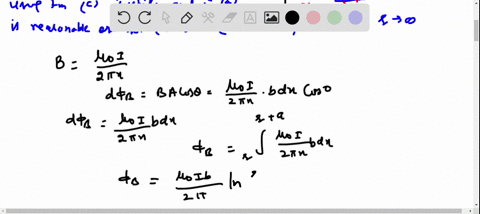 is reasonable
r → ∞
B = μ₀I / 2πx
dΦ_B = BA cosθ = μ₀I / 2πx · b dx cos 0
dΦ_B = μ₀I / 2πx b dx
Φ_B = ∫_r^{r+a} μ₀I / 2πx b dx
Φ_B = μ₀Ib / 2π ln